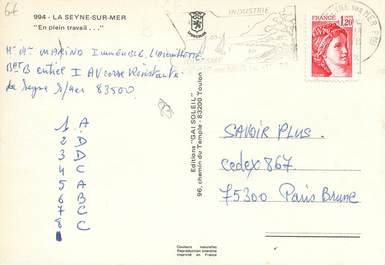 66
994 - LA SEYNE-SUR-MER
"En plein travail . . ."
INDUSTRIE
FRANCE
1,20
Mr Mme MARINO Immeuble
Bat B entrée I AV corse Résistante
La Seyne S/Mer 83500
1 A
2 D
3 D
4 C
5 A
6 B
7 C
8 C
Editions "GAI SOLEIL"
96, chemin du Temple - 83200 Toulon
SAVOIR PLUS.
Cedex 867
75300 Paris Brune
Couleurs naturelles
Reproduction interdite
Imprimé en France